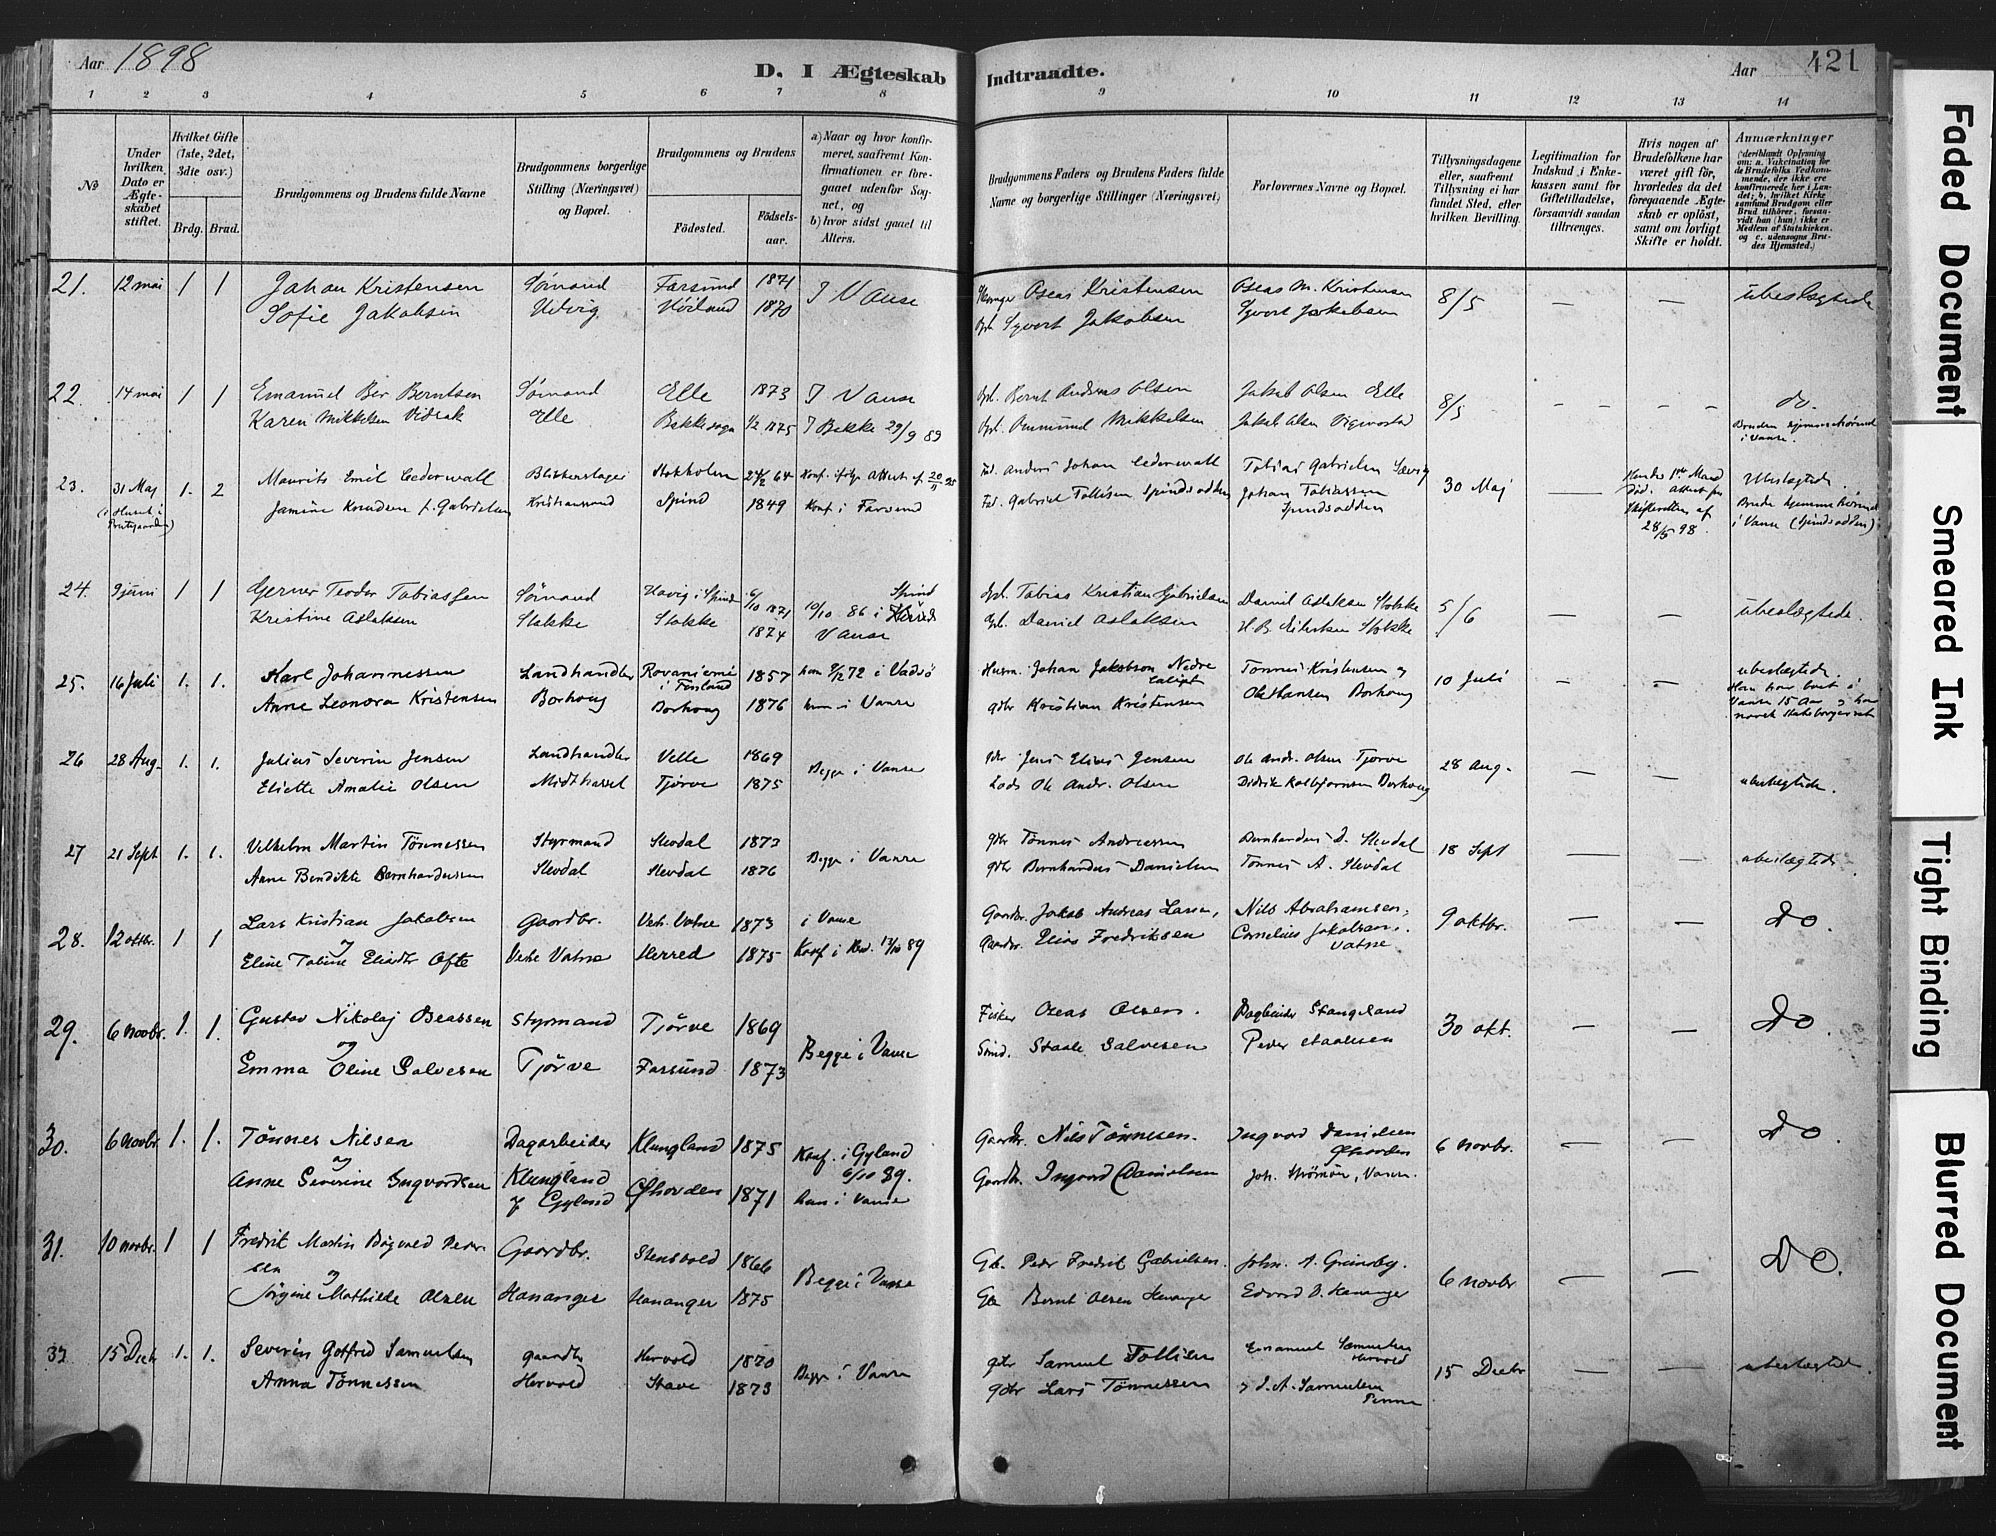 Aar 1898
D. I Ægteskab Indtraadte.
Aar 421
1 2 3 4 5 6 7 8 9 10 11 12 13 14
No
Under hvilken Dato er Ægteskabet stiftet.
Hvilket Gifte (1ste, 2det, 3die osv.)
Brdg. Brud.
Brudgommens og Brudens fulde Navne
Brudgommens borgerlige Stilling (Næringsvei) og Bopæl.
Brudgommens og Brudens
Fødested. Fødselsaar.
a) Naar og hvor konfirmeret, saafremt Konfirmationen er foregaaet udenfor Sognet, og
b) hvor sidst gaaet til Alters.
Brudgommens Faders og Brudens Faders fulde Navne og borgerlige Stillinger (Næringsvei)
Forlovernes Navne og Bopæl.
Tillysningsdagene eller, saafremt Tillysning ei har fundet Sted, efter hvilken Bevilling.
Legitimation for Indskud i Enkekassen samt for Giftetilladelse, forsaavidt saadan tiltrænges.
Hvis nogen af Brudefolkene har været gift før, hvorledes da det foregaaende Ægteskab er opløst, samt om lovligt Skifte er holdt.
Anmærkninger (deriblandt Oplysning om: a. Vakcination for de Brudefolks Vedkommende, der ikke ere konfirmerede her i Landet; b. hvilket Kirkesamfund Brudgom eller Brud tilhører, forsaavidt han (hun) ikke er Medlem af Statskirken, og c. udensogns Brudes Hjemsted.)
21. 12 mai 1 1 Johan Kristensen Sømand Farsund 1871 I Vanse Oseas Kristensen Oseas M. Kristensen 8/5 — — ubeslægtede
Sofie Jakobsen Vøiland 1870 Syvert Jakobsen Syvert Jakobsen
22. 14 mai 1 1 Emanuel Ber Berntsen Sømand Elle 1873 I Vanse Bernt Andreas Olsen Jakob Olsen Elle 8/5 — — do.
Karen Mikkelsen Vidrak Elle Bakke sogn 1/2 1875 I Bakke 29/9 89 Mikkelsen Jakob Olsen Bruden hjemmehørende i Vanse.
23. 31 Maj 1. 2 Maurits Emil Cederwall Blikkenslager Stokholm 24/2 64 Konf. ifølge Attest af 20/11 95 Anders Johan Cederwall Tobias Gabrielsen 30 Maj — Hendes 1ste Mand død. Attest fra Skifteretten af 28/5 98. Ubeslægtede.
(i Huset i ) Jamine Knudsen f. Gabrielsen Kristianssund Spind 1849 Konf. i Farsund Gabriel Tollisen Spindsodden Johan Tobiassen Spindsodden Brude hjemmehørende i Vanse (Spindsodden)
24. 9 juni 1 1 Gerner Teodor Tobiassen Sømand Havig i Spind 6/10 1871 10/10 86 i Spind Herred Tobias Kristian Gabrielsen Daniel Aslaksen Stokke 5/6 — — ubeslægtede.
Kristine Aslaksen Stokke Stokke 1874 Vanse Daniel Aslaksen Stokke
25. 16 Juli 1. 1. Karl Johannessen Landhandler Rovaniemi i Finland 1857 han 8/12 72 i Vadsø Husm. Johan Jakobson Nedre Tønnes Kristensen og 10 Juli — — ubeslægtede.
Anne Leonora Kristensen Borhoug Borhoug 1876 hun i Vanse gdbr Kristian Kristensen Ole Hansen Borhoug Han har boet i Vanse 15 Aar og har norsk Statsborgerret
26 28 Aug. 1. 1. Julius Severin Jensen Landhandler Velle 1869 Begge i Vanse gdbr Jens Elias Jensen Ole Andr. Olsen Tjørve 28 Aug. — — ubeslægtede.
Eliette Amalie Olsen Midthassel Tjørve 1875 Lods Ole Andr. Olsen Didrik Kolbjørnsen Borhoug
27 21 Sept 1. 1. Vilhelm Martin Tønnessen Styrmand Stevdal 1873 Begge i Vanse gdbr Tønnes Andreassen Bernhardus D. Stevdal 18 Sept — — ubeslægtede
Anne Bendikte Bernhardussen Stevdal Stevdal 1876 gdbr Bernhardus Danielsen Tønnes A. Stevdal
28. 12 oktbr. 1 1 Lars Kristian Jakobsen Gaardbr. Vatne 1873 i Vanse Gaardbr. Jakob Andreas Larsen, Nils Abrahamsen, 9 oktbr. — — Do.
og
Eline Tobine Eliasdtr Ofte Vatne Herred 1875 Konf. i Her. 89 Gaardbr. Elias Fredriksen Cornelius Jakobsen Vatne
29. 6 novbr. 1. 1. Gustav Nikolaj Oeassen Styrmand Tjørve 1869 Begge i Vanse Fisker Oseas Olsen. Stangeland 30 okt. — — Do.
og
Emma Oline Salvesen Tjørve Farsund 1873 Staale Salvesen Peder Staalesen
30. 6 novbr. 1. 1. Tønnes Nilsen Dagarbeider Klungland 1875 Konf. i Gyland 6/10 89. Gaardbr. Nils Tønnesen. Ingvard Danielsen Østhovden 6 novbr. — — Do.
og
Anne Severine Ingvordsen Klungland af Gyland Østhovden 1871 hun i Vanse Gaardbr. Ingvord Danielsen Joh. Strømøe, Vanse.
31. 10 novbr. 1 1 Fredrik Martin Bögvald Pedersen Gaardbr. Stensvold 1866 Begge i Vanse Gb. Peder Fredrik Gabrielsen. John. A. Grimsby. 6 novbr — — Do.
og
Jørgine Mathilde Olsen Hananger Hananger 1875 Gb Bernt Olsen Hananger Edvard O. Hananger
32. 15 Decbr 1. 1. Severin Gotfred Samuelsen gaardbr Hervold 1870 Begge i Vanse gdbr Samuel Tollisen Emanuel Samuelsen Hervold 15 Decbr — — ubeslægtede.
Anna Tønnessen Hervold Stave 1873 gdbr Lars Tønnessen J. A. Samuelsen Penne
Faded Document
Smeared Ink
Tight Binding
Blurred Document